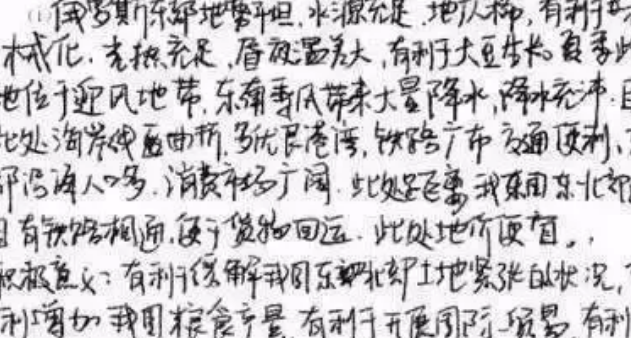 俄罗斯东部地势平坦,水源充足,地广人稀,有利于
械化.光热充足,昼夜温差大,有利于大豆生长.夏季此
地位于迎风地带,东南季风带来大量降水,降水充沛.且
此处海岸线曲折,多优良港湾,铁路广布交通便利、
部沿海人口多.消费市场广阔.此处距离我国东北部
且有铁路相通,便于货物回运.此处地价便宜。
积极意义:有利于缓解我国东北部土地紧张的状况,
利增加我国粮食产量,有利于开展国际贸易,有利